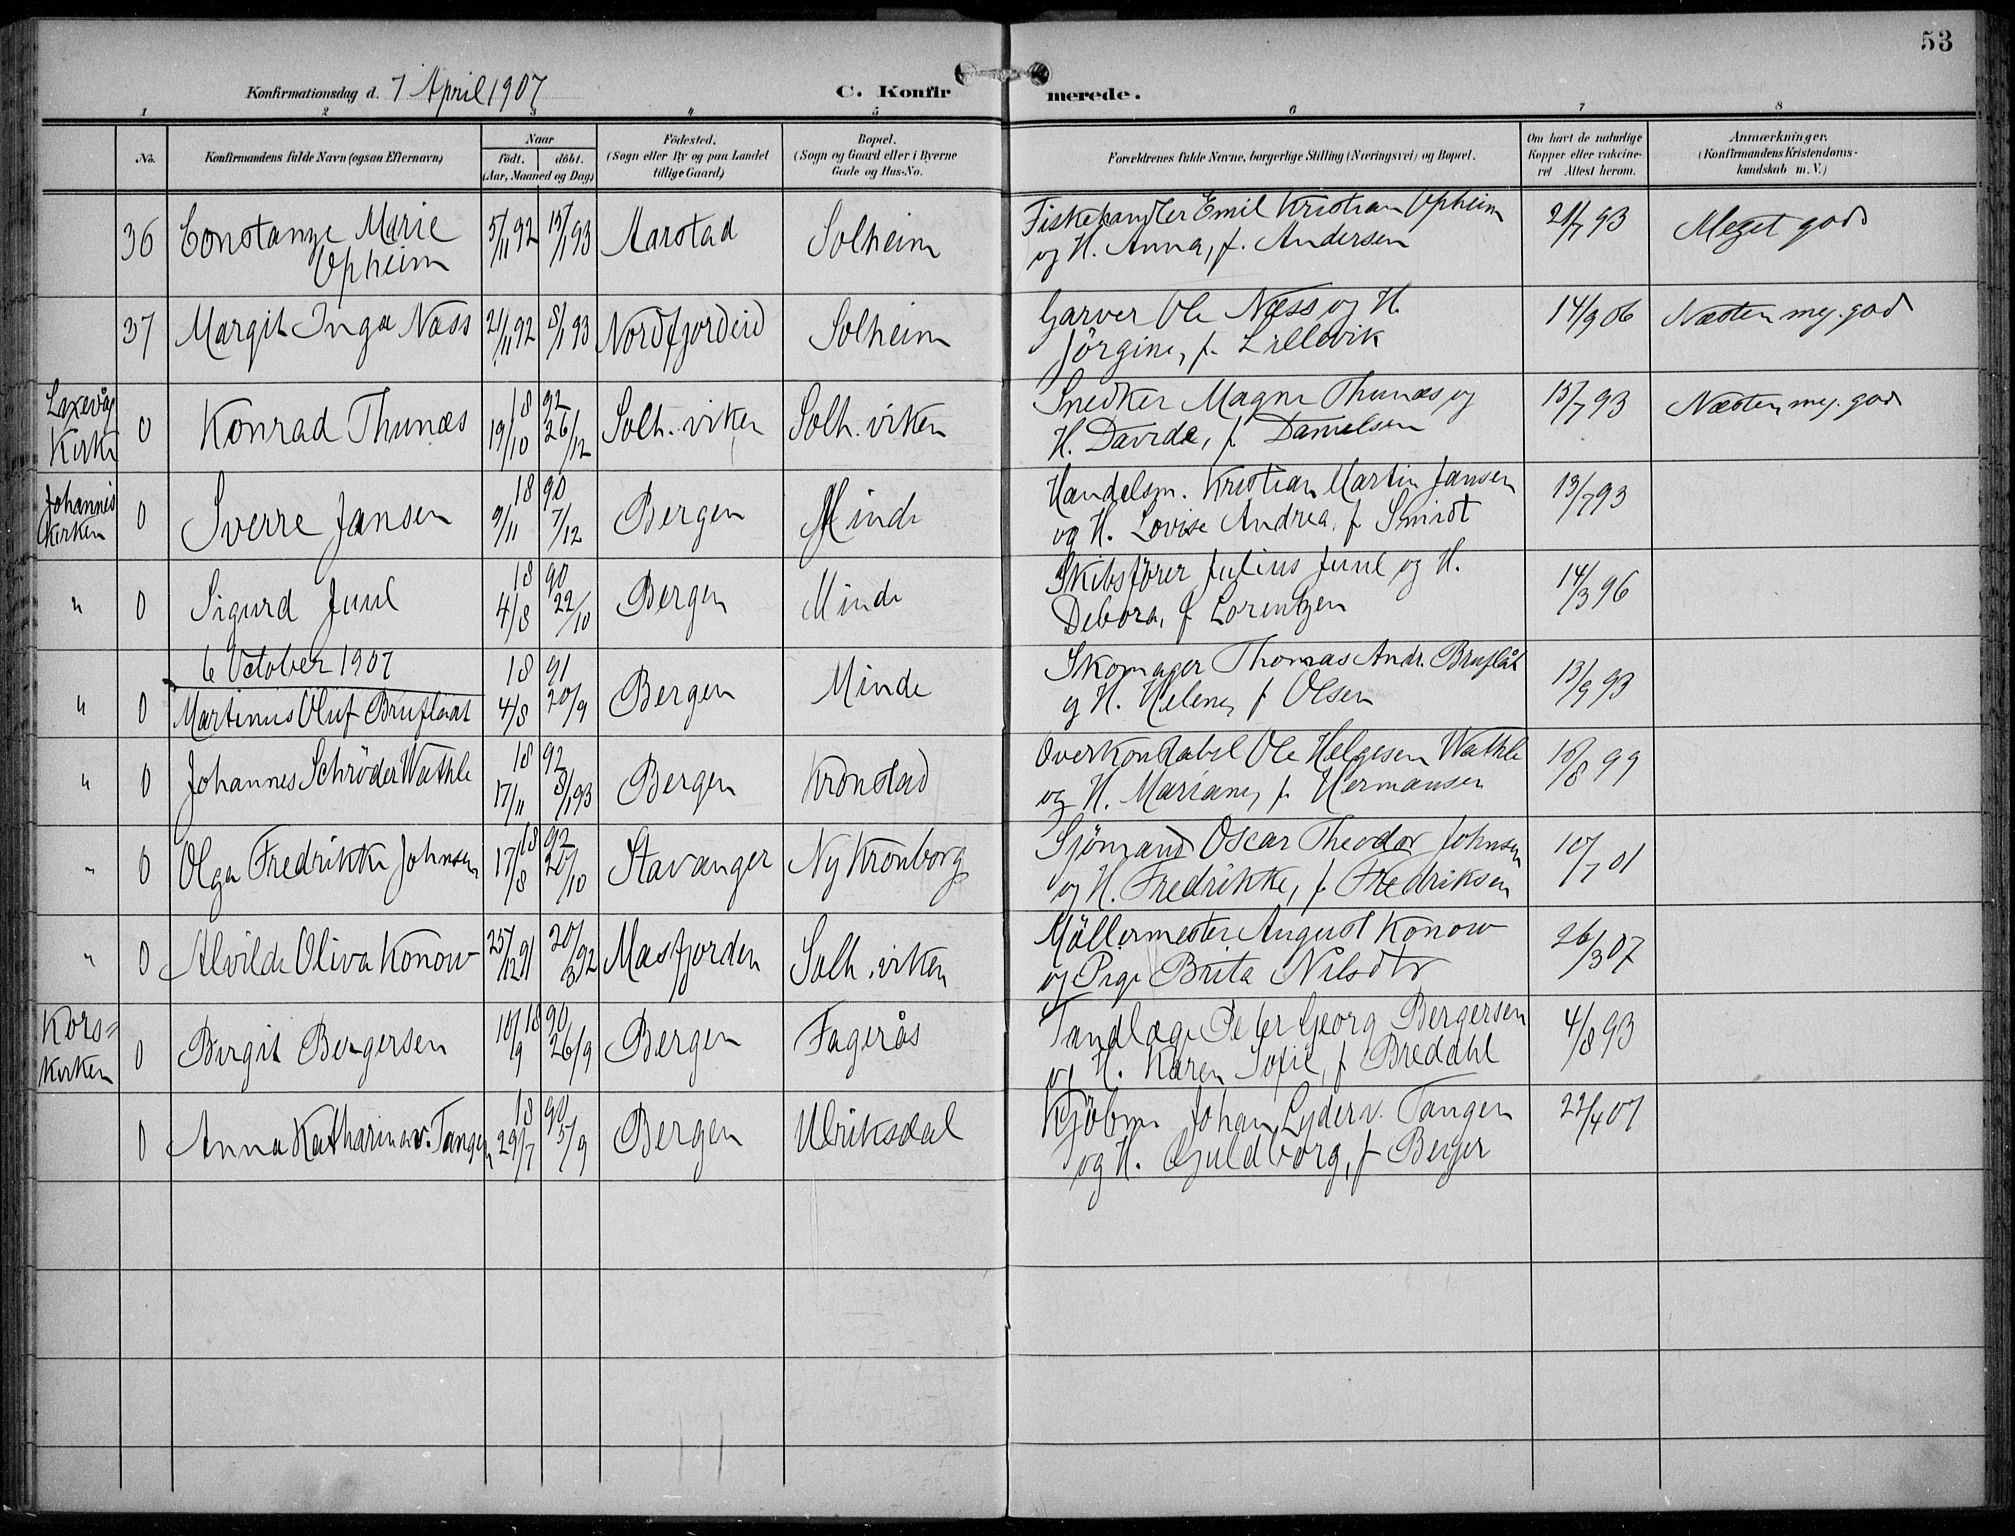 53
Konfirmationsdag d. 7 April 1907
C. Konfirmerede.
1 2 3 4 5 6 7 8
No.
Konfirmandens fulde Navn (ogsaa Efternavn)
Naar
födt. döbt.
(Aar, Maaned og Dag)
Födested.
(Sogn eller By og paa Landet
tillige Gaard)
Bopæl.
(Sogn og Gaard eller i Byerne
Gade og Hus-No.
Forældrenes fulde Navne, borgerlige Stilling (Næringsvei) og Bopæl.
Om havt de naturlige
Kopper eller vakcine-
ret Attest herom.
Anmærkninger.
(Konfirmandens Kristendoms-
kundskab m. V.)
36 Constanze Marie Opheim 5/11 92 15/1 93 Aarstad Solheim
Fiskehandler Emil Kristian Opheim
og H. Anna, f. Andersen
21/7 93 Meget god
37 Margit Inga Næss 21/11 92 8/1 93 Nordfjordeid Solheim
Garver Ole Næss og H.
Jörgine, f. Lillevik
14/9 06 Næsten meg. god
Laxevåg Kirke 0 Konrad Thunæs 18 92 19/10 26/12 Solh. viken Solh. viken
Snedker Magne Thunæs og
H. Davida, f. Danielsen
15/7 93 Næsten meg. god
Johannis kirken 0 Sverre Jansen 18 90 9/11 7/12 Bergen Minde
Handelsm. Kristian Martin Jansen
og H. Lovise Andrea, f Smidt
13/7 93
" 0 Sigurd Juul 18 90 4/8 22/10 Bergen Minde
Skibsfører Julius Juul og H.
Debora, f Lorentzen
14/3 96
6 October 1907
" 0 Martinus Oluf Bruflaat 18 91 4/8 20/9 Bergen Minde
Skomager Thomas Andr. Bruflåt
og H. Helene, f Olsen
13/9 93
" 0 Johannes Schrøder Wathle 18 92 17/11 8/1 93 Bergen Kronstad
Overkonstabel Ole Helgesen Wathle
og H. Mariane, f. Hermansen
18/8 99
" 0 Olga Fredrikke Johnsen 18 92 17/8 20/10 Stavanger Ny Kronborg
Sjömand Oscar Theodor Johnsen
og H. Fredrikke, f. Fredriksen
10/7 01
" 0 Alvilde Oliva Konow 25/12 91 20/3 92 Masfjorden Solh. viken
Möllermester August Konow
og Pige Brita Nilsdtr
26/3 07
Kors=kirken 0 Birgit Bergersen 18 90 10/9 26/9 Bergen Fagerås
Tandlæge Peter Georg Bergersen
og H. Karen Sofie, f Bredahl
4/8 93
0 Anna Katharina v. Tangen 18 90 29/7 5/9 Bergen Ulriksdal
Kjöbm. Johan Lyder v. Tangen
og H. Guldborg, f Berger
22/4 07